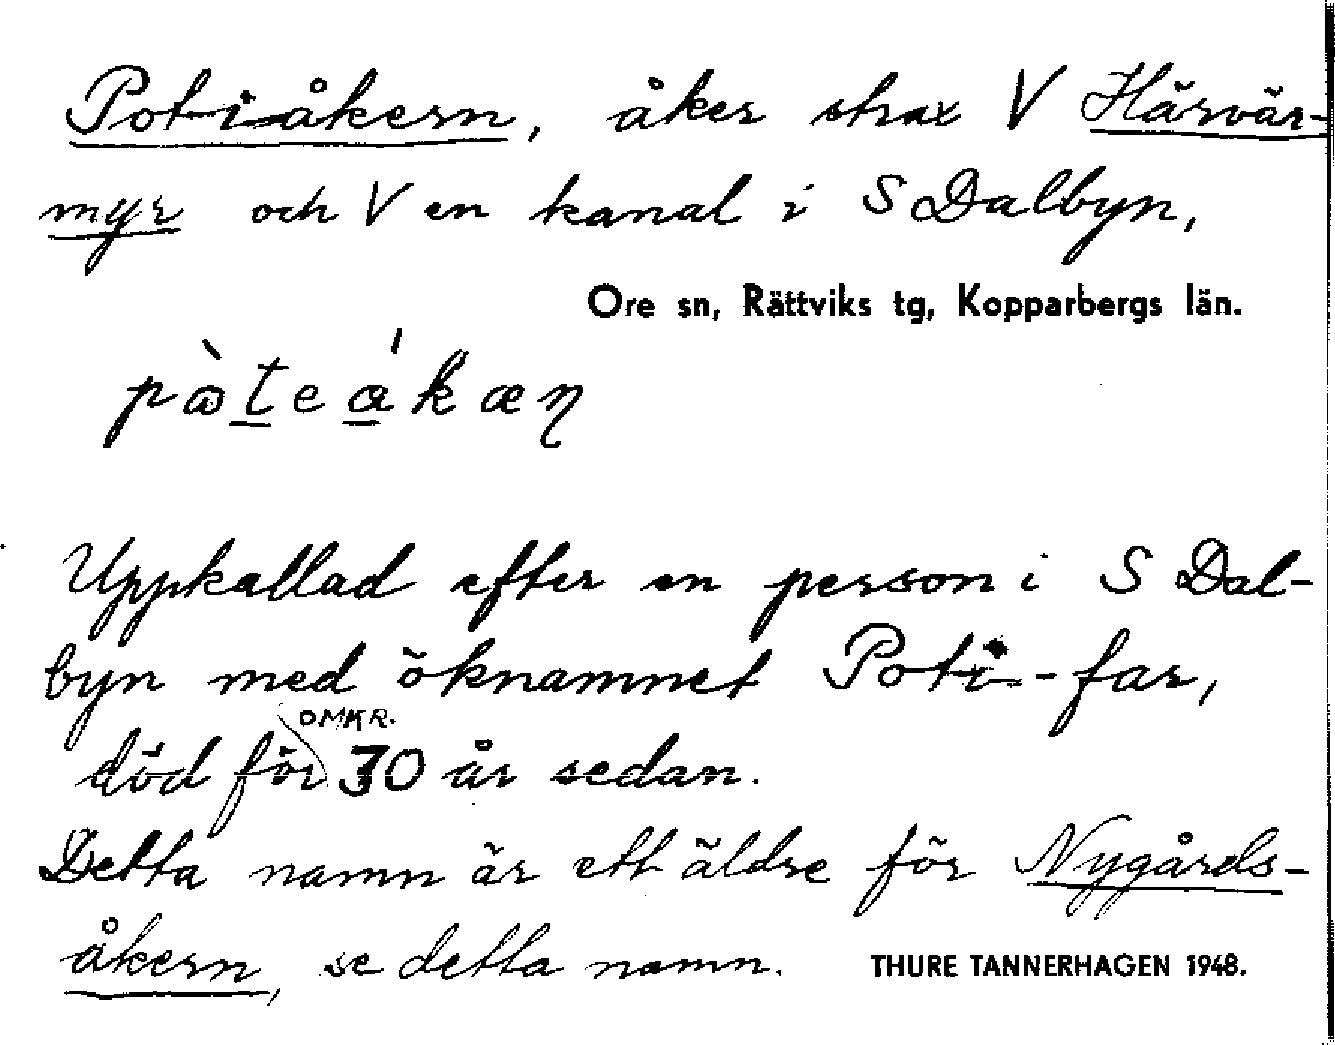 Poti-åkern, åker strax V Härvär-
myr och V en kanal i S Dalbyn,
Ore sn, Rättviks tg, Kopparbergs län.
Uppkallad efter en person i S Dal-
byn med öknamnet Poti-far,
OMKR.
död för 30 år sedan.
Detta namn är ett äldre för Nygårds-
åkern, se detta namn. THURE TANNERHAGEN 1948.